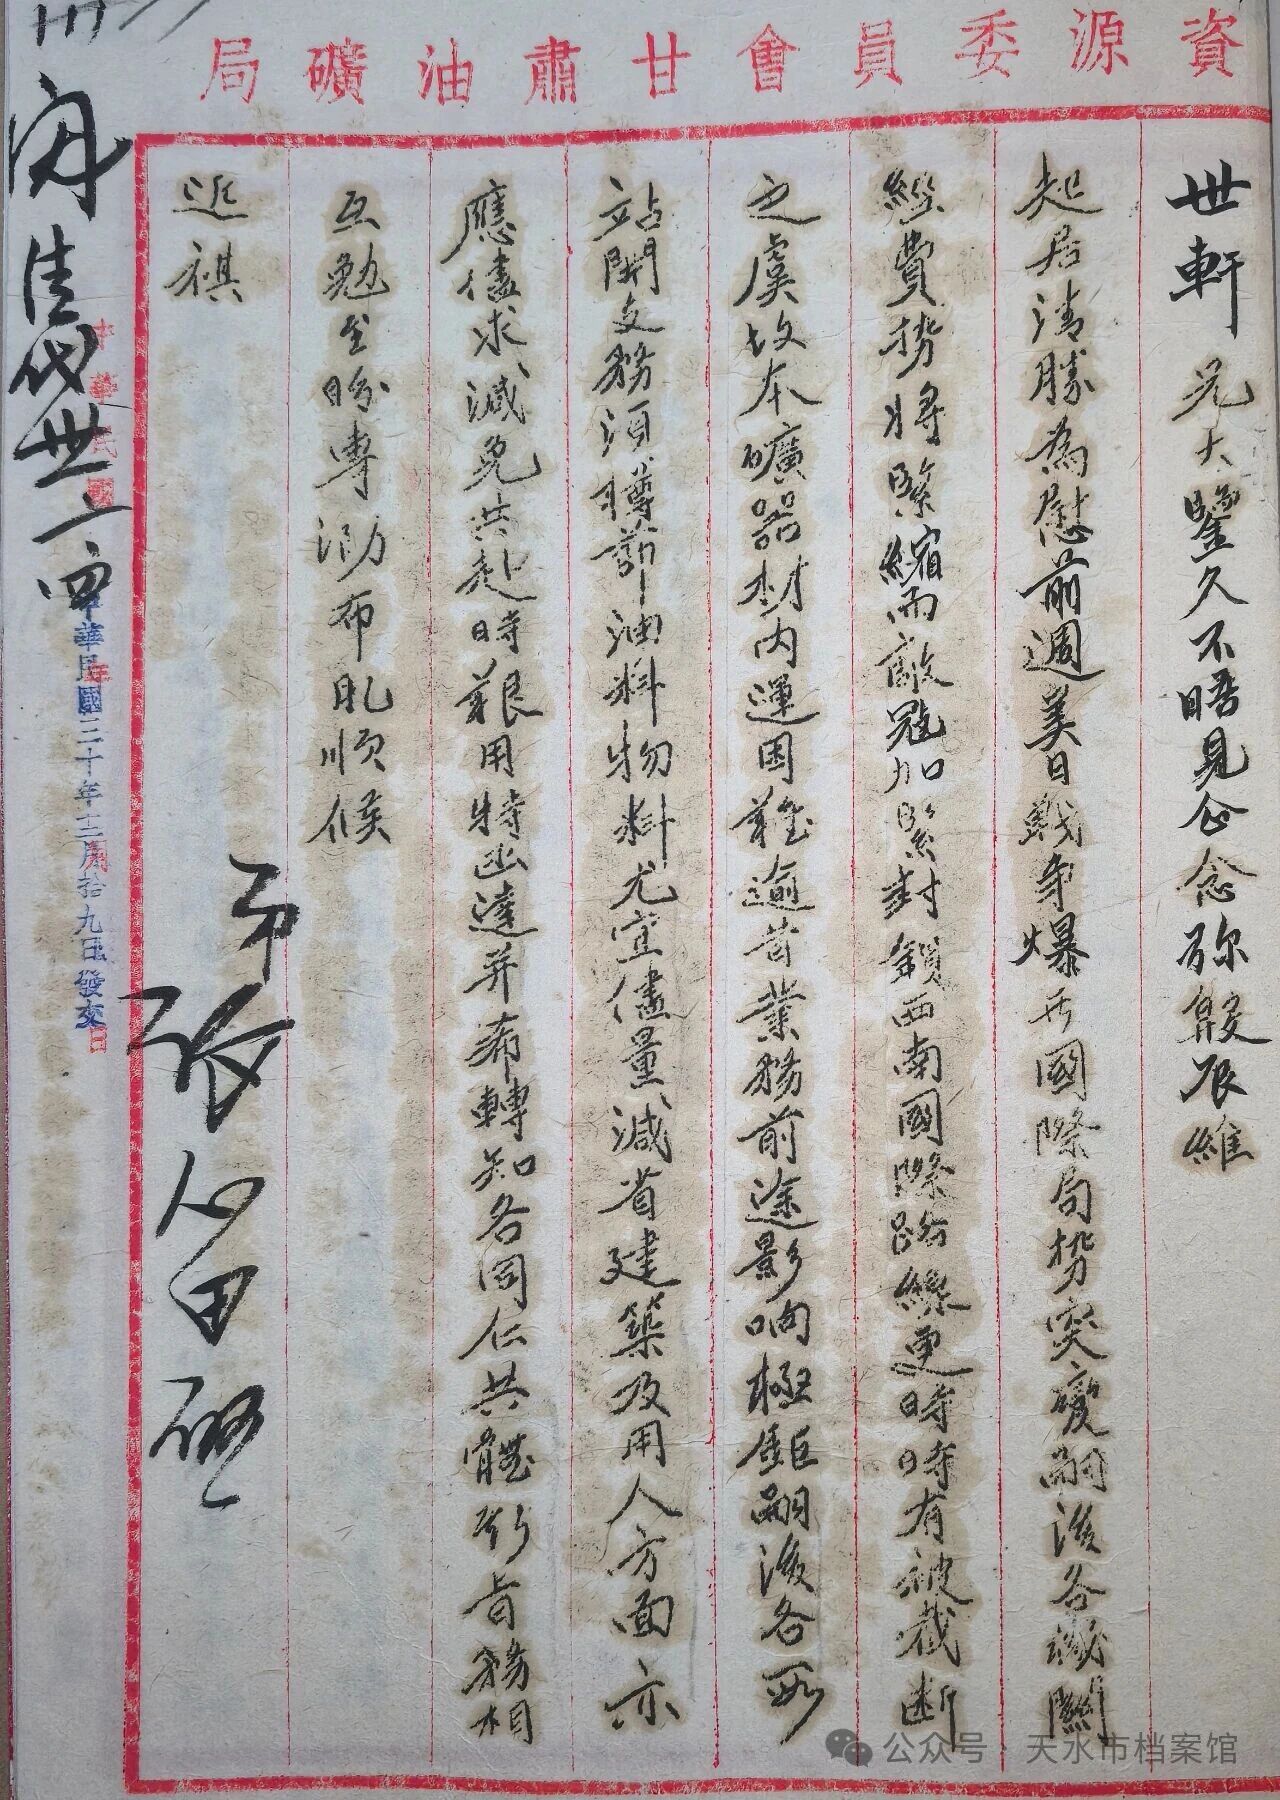 資源委員會甘肅油礦局
世軒兄大鑒久不晤見企念弥殷辰維
起居清勝為慰前週美日戰争爆发國際局势突變嗣後各機關
經費势將緊縮而敵寇加緊封鎖西南國際路線更時時有被截斷
之虞故本礦器材內運困難逾昔業務前途影响極鉅嗣後各所
站開支務須撙節油料物料尤宜儘量減省建築及用人方面亦
應儘求減免共赴時艱用特函達并希轉知各同仁共體斯旨務相
互勉至盼專泐布肊順候
近祺
弟張心田啓
中華民國三十年十二月拾九日發文
公众号 · 天水市档案馆